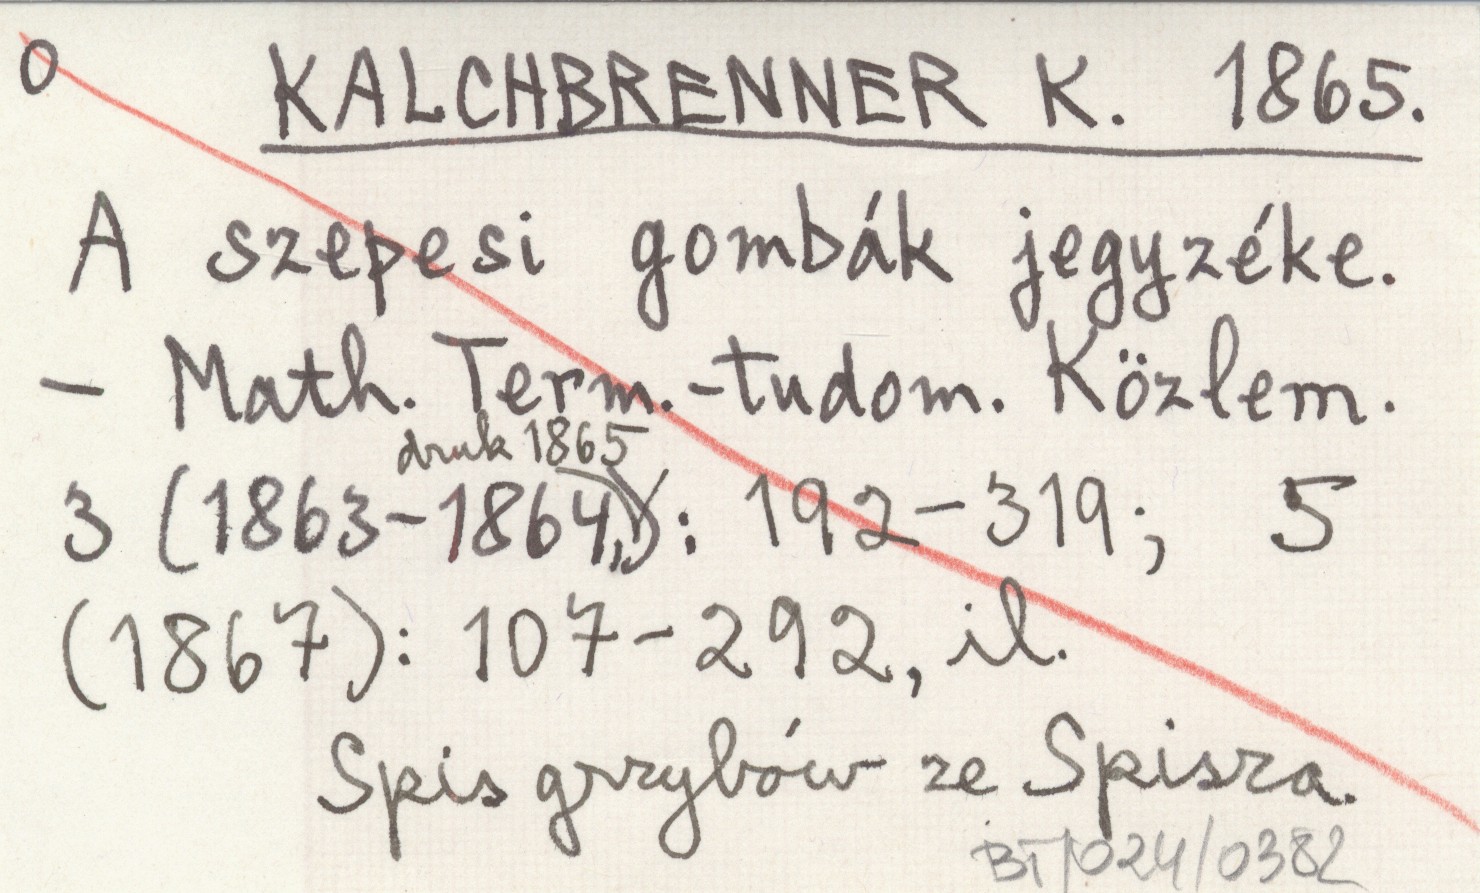 0 KALCHBRENNER K. 1865.
A szepesi gombák jegyzéke.
- Math. Term.-tudom. Közlem.
druk 1865
3 (1863-1864,): 192-319; 5
(1867): 107-292, il.
Spis grzybów ze Spisza.
BT/024/0382